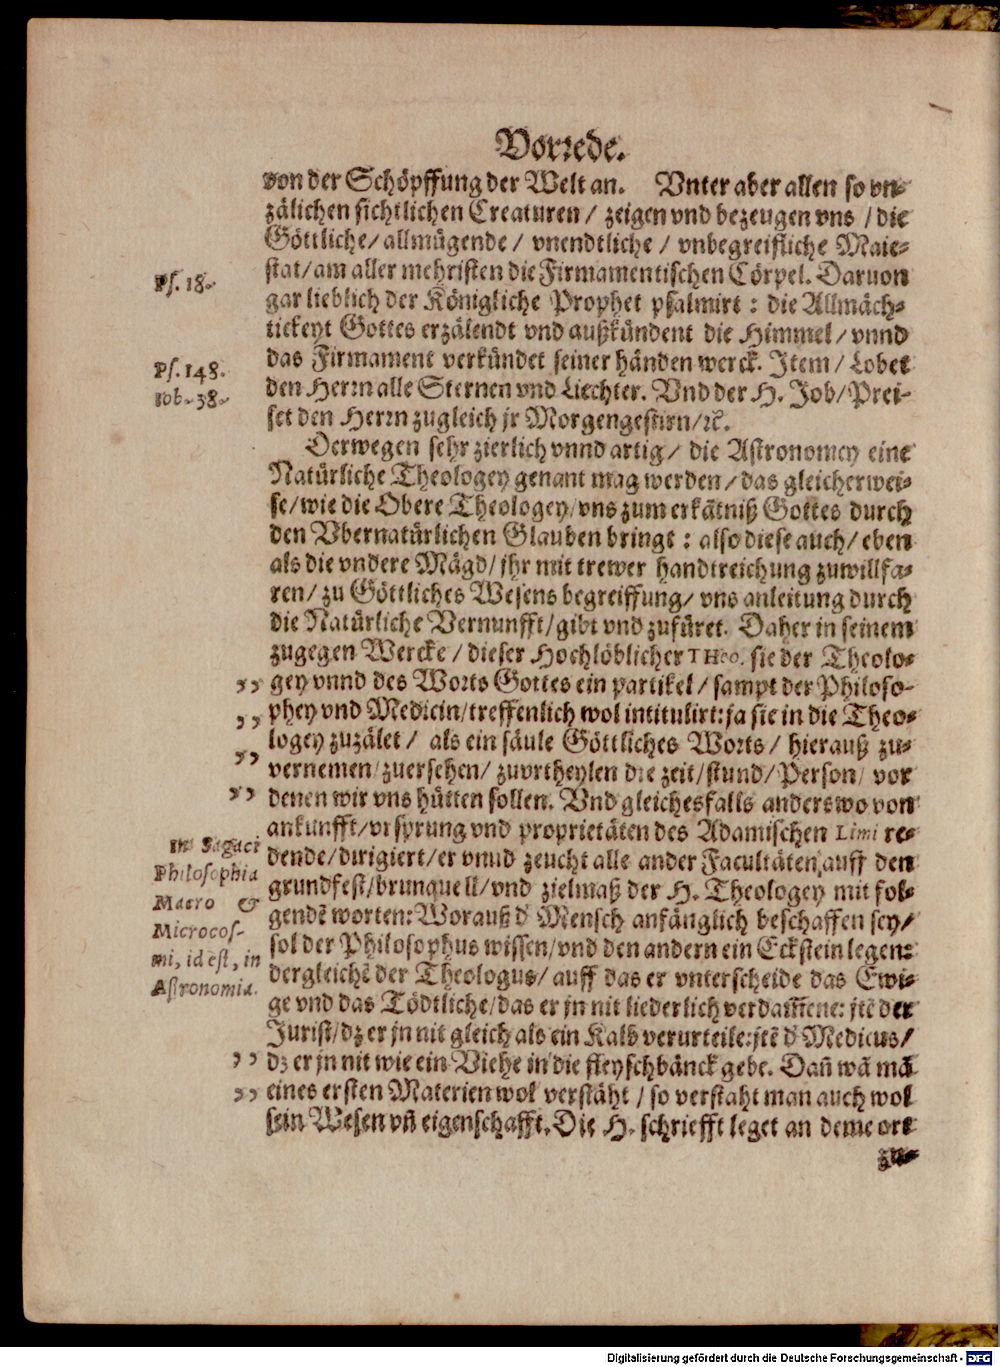 Vorrede.
von der Schöpffung der Welt an. Vnter aber allen so vn-
zälichen sichtlichen Creaturen / zeigen vnd bezeugen vns / die
Göttliche/ allmügende / vnendtliche / vnbegreifliche Maie-
stat/ am aller mehristen die Firmamentischen Cörpel. Daruon
Ps. 18.
gar lieblich der Königliche Prophet psalmirt : die Allmäch-
tickeyt Gottes erzälendt vnd außkündent die Himmel/ vnnd
das Firmament verkündet seiner händen werck. Item / Lobet
Ps. 148.
den Herrn alle Sternen vnd Liechter. Vnd der H. Job/ Prei-
Iob. 38.
set den Herrn zugleich jr Morgengestirn/ ꝛc.
Derwegen sehr zierlich vnnd artig / die Astronomey eine
Natürliche Theologey genant mag werden / das gleicherwei-
se/ wie die Obere Theologey/ vns zum erkätniß Gottes durch
den Vbernatürlichen Glauben bringt : also diese auch/ eben
als die vndere Mägd/ jhr mit trewer handtreichung zuwillfa-
ren/ zu Göttliches Wesens begreiffung/ vns anleitung durch
die Natürliche Vernunfft/ gibt vnd zufüret. Daher in seinem
zugegen Wercke / dieser Hochlöblicher THEO. sie der Theolo-
,, gey vnnd des Worts Gottes ein partikel / sampt der Philoso-
,, phey vnd Medicin/ treffenlich wol intitulirt: ja sie in die Theo-
,, logey zuzälet / als ein säule Göttliches Worts / hierauß zu-
vernemen/ zuersehen/ zuvrtheylen die zeit/ stund/ Person/ vor
,, denen wir vns hütten sollen. Vnd gleichesfalls anderswo von
ankunfft/ vrsprung vnd proprietäten des Adamischen Limi re-
In Sagaci
Philosophia
Macro &
Microcos-
mi, id est, in
Astronomia.
dende/ dirigiert/ er vnnd zeucht alle ander Facultäten auff den
grundfest/ brunquell/ vnd zielmaß der H. Theologey mit fol-
gendẽ worten: Worauß d' Mensch anfänglich beschaffen sey/
sol der Philosophus wissen/ vnd den andern ein Eckstein legen:
dergleichẽ der Theologus/ auff das er vnterscheide das Ewi-
ge vnd das Tödtliche/ das er jn nit liederlich verdam̃ene: jtẽ der
Jurist/ dz er jn nit gleich als ein Kalb verurteile: jtẽ d' Medicus/
,, dz er jn nit wie ein Viehe in die fleyschbänck gebe. Dañ wã mã
,, eines ersten Materien wol verstäht / so verstaht man auch wol
sein Wesen vñ eigenschafft. Die H. schriefft leget an deme ort
zu-
Digitalisierung gefördert durch die Deutsche Forschungsgemeinschaft - DFG